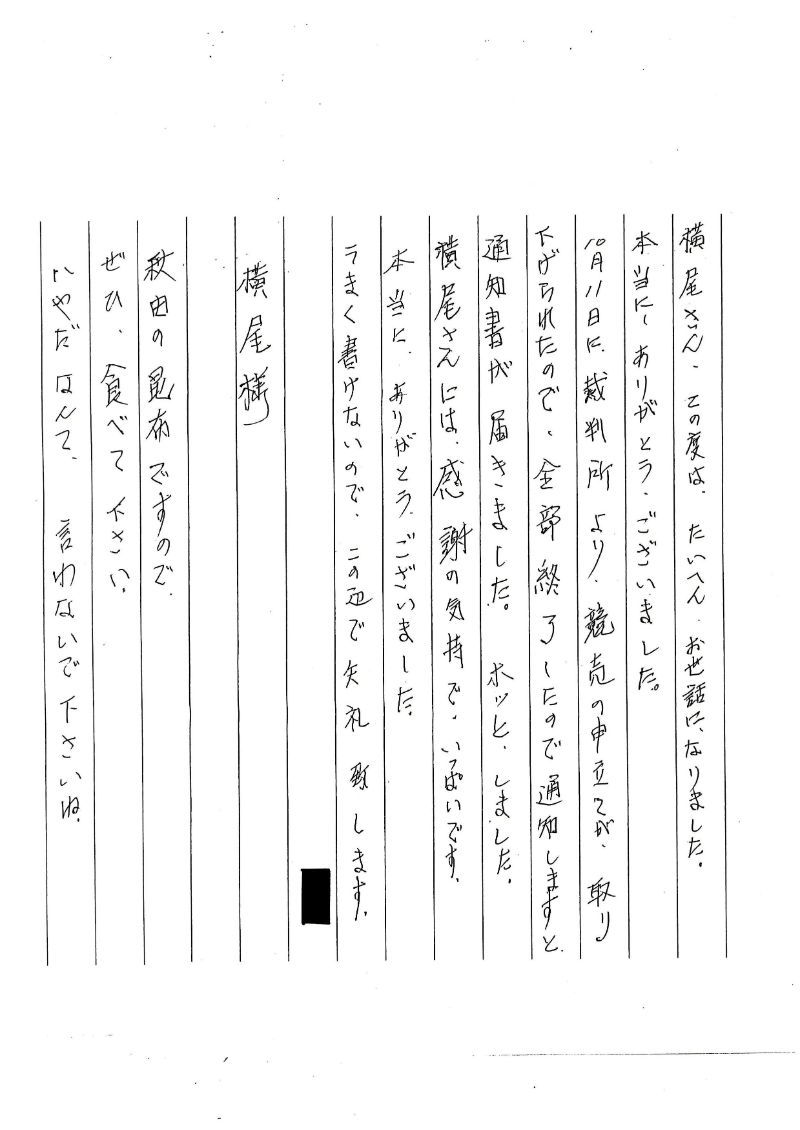 横尾さん、この度は、たいへん、お世話に、なりました。
本当に、ありがとう、ございました。
10月11日に、裁判所より、競売の申立てが、取り
下げられたので、全部終了したので通知しますと、
通知書が届きました。ホッと、しました。
横尾さんには、感謝の気持で、いっぱいです。
本当に、ありがとう、ございました。
うまく書けないので、この辺で失礼致します。
横尾様
秋田の昆布ですので、
ぜひ、食べて下さい。
いやだなんて、言わないで下さいね。